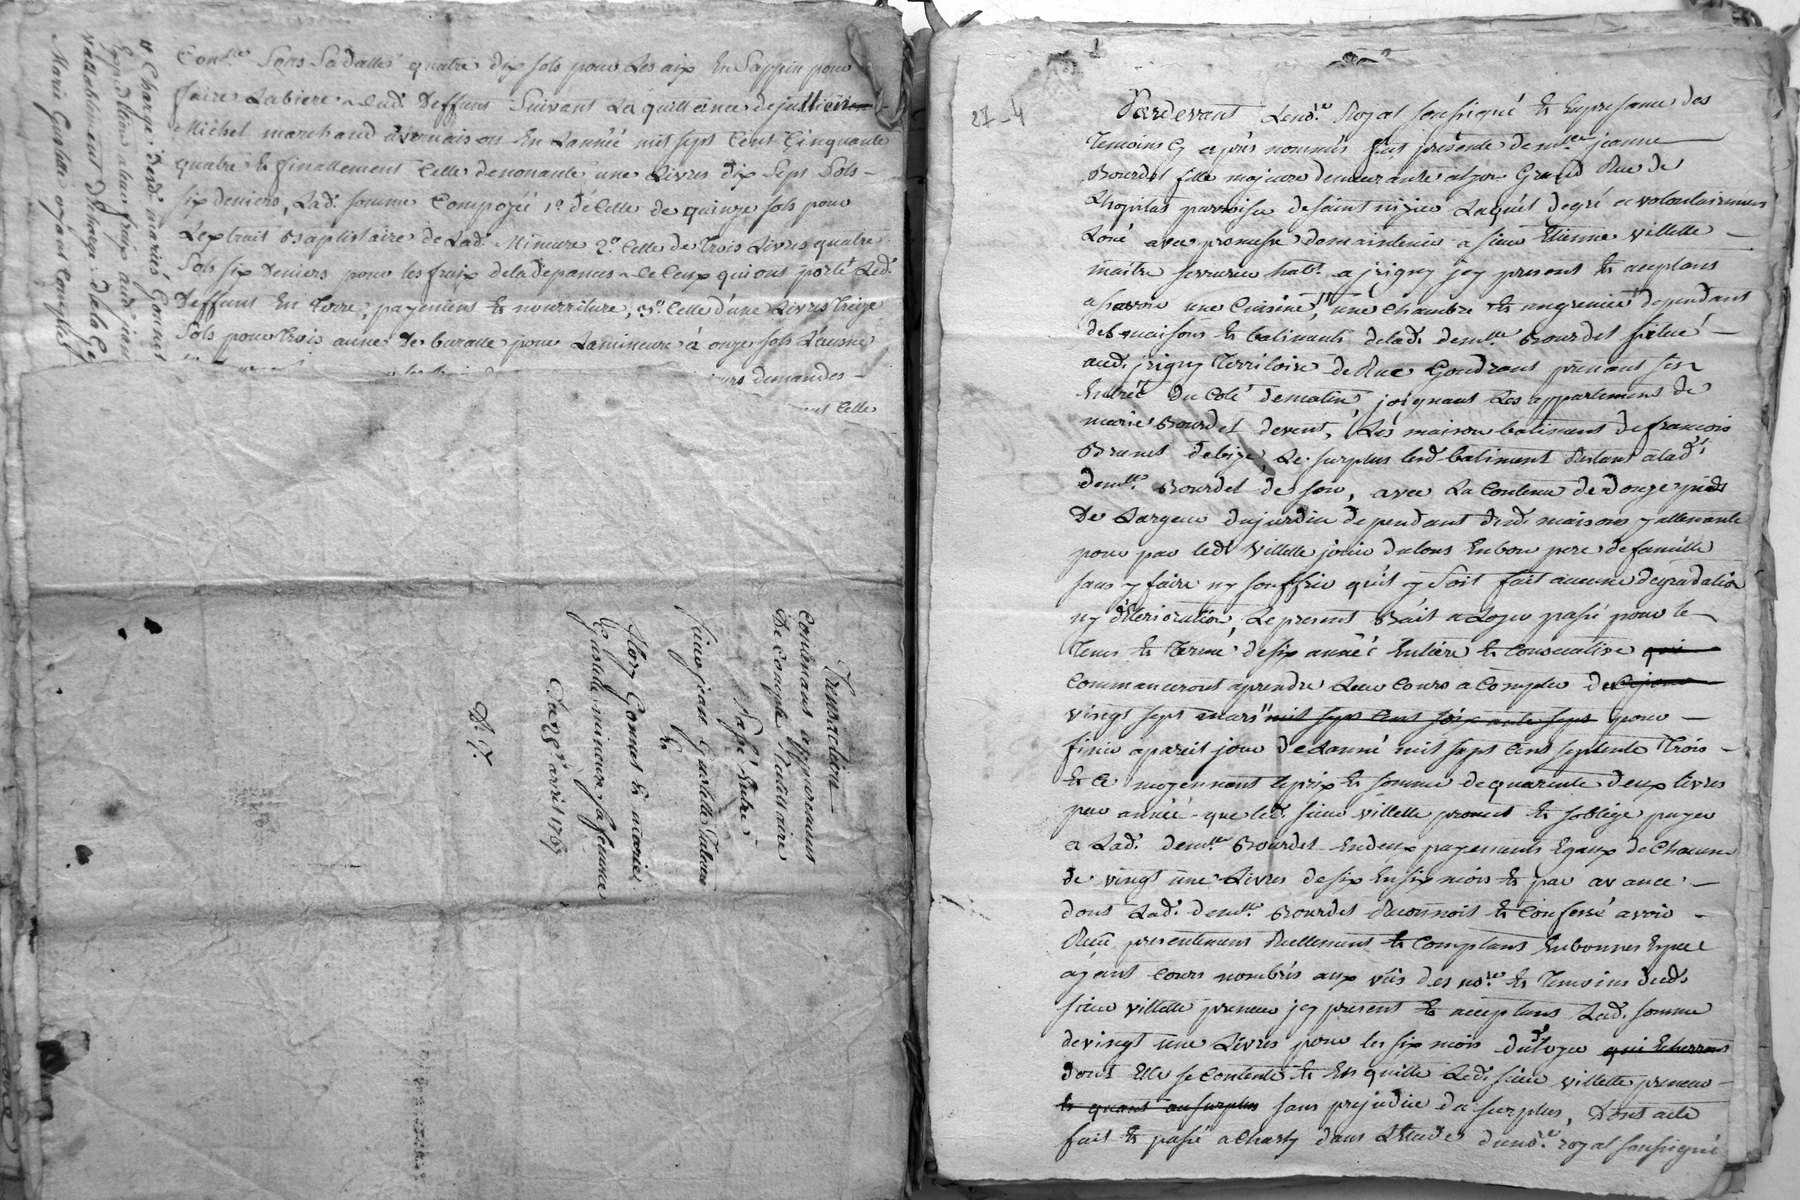 Con.lle Sous Sa datte quatre dix sols pour Les aix En Sappin pour
faire La biere dud. Deffunt Suivant La quittance de
Michel marchand a vernaison En L'année mil sept Cent Cinquante
quatre & finallement Celle de nonante une Livres dix Sept Sols
six deniers, Lad. somme Composéé 1º de Celle de quinze sols pour
L'extrait Baptistaire de Lad. Mineure 2º Celle de Trois Livres quatre
Sols six Deniers pour les fraix de la depances de Ceux qui ont porté Led.
Deffunt En Terre, payement & nourriture, 3º Celle d'une Livres Treize
Sols pour trois aunes de buratte pour La mineure à onze sols L'aune
demandes
Celle
a Charge: desd. mariés Gonnet
Exped.lier a leur fraix aud. jean
Marie Gastille oyant Compte
Transaction
Contenant apurement
De Compte Tutellaire
Passé Entre
sieur jean Gastille
&
flory Gonnet & marie
Gastille mineure sa femme
Du 28e avril 1767
27-4
Pardevant Le no.re Royal soussigné & En presence des
Temoins Cy après nommés fut présente dem.lle jeanne
Bourdet fille majeure demeurante a Lyon Grand Rue de
L'hopital parroisse de saint nizier Laquelle de gré et volontairement
Loué avec promesse de maintenir a sieur Etienne villette
maitre serrurier hab.t a jrigny jcy present & acceptant
a sçavoir une Cuisine, une Chambre & un grenier dependant
des maisons & batiments de lad. dem.lle Bourdet situé
aud. jrigny Territoire de Rue Gondrant prenant ses
Entréé du Coté de matin, joignant Les appartements de
marie Bourdet de vent, Les maison batiment de francois
Brunet de bize, Le surplus desd. batiment Restant a lad.
dem.lle Bourdet de soir, avec La Contenue de Douze pieds
De Largeur du jardin dependant desd. maisons y attenante
pour par led. Villette jouir du tout En bon pere de famille
sans y faire ny souffrir qu'il y Soit fait aucune degradation
ny déterioration, Le present Bail a Loyer passé pour le
Tems & Terme de six année Entiere & Consecutive qui
commanceront a prendre Leur Cours a Compter de Ce jour
vingt sept mars mil sept Cent soixante sept pour
finir a pareil jour de L'anné mil sept Cent septente Trois
& Ce moyennant le prix & somme de quarente Deux livres
par année que led. sieur villette promet & s'oblige payer
a Lad. dem.lle Bourdet En deux payements Egaux de Chacun
de vingt une Livres de six En six mois & par avance
dont Lad. dem.lle Bourdet Reconnoit & Confesse avoir
Reçu presentement Réellement & Comptant En bonnes Especes
ayant Cours nombrés aux vûs des no.re & Temoins dud.
sieur villette preneur jcy present & acceptant Lad. somme
de vingt une Livres pour les six mois du Loyer qui Echerront
dont Elle se Contente & En quitte Led. sieur villette preneur
& quant au surplus sans prejudice du surplus, Dont acte
fait & passé a Charly dans L'Etude du no.re royal soussigné